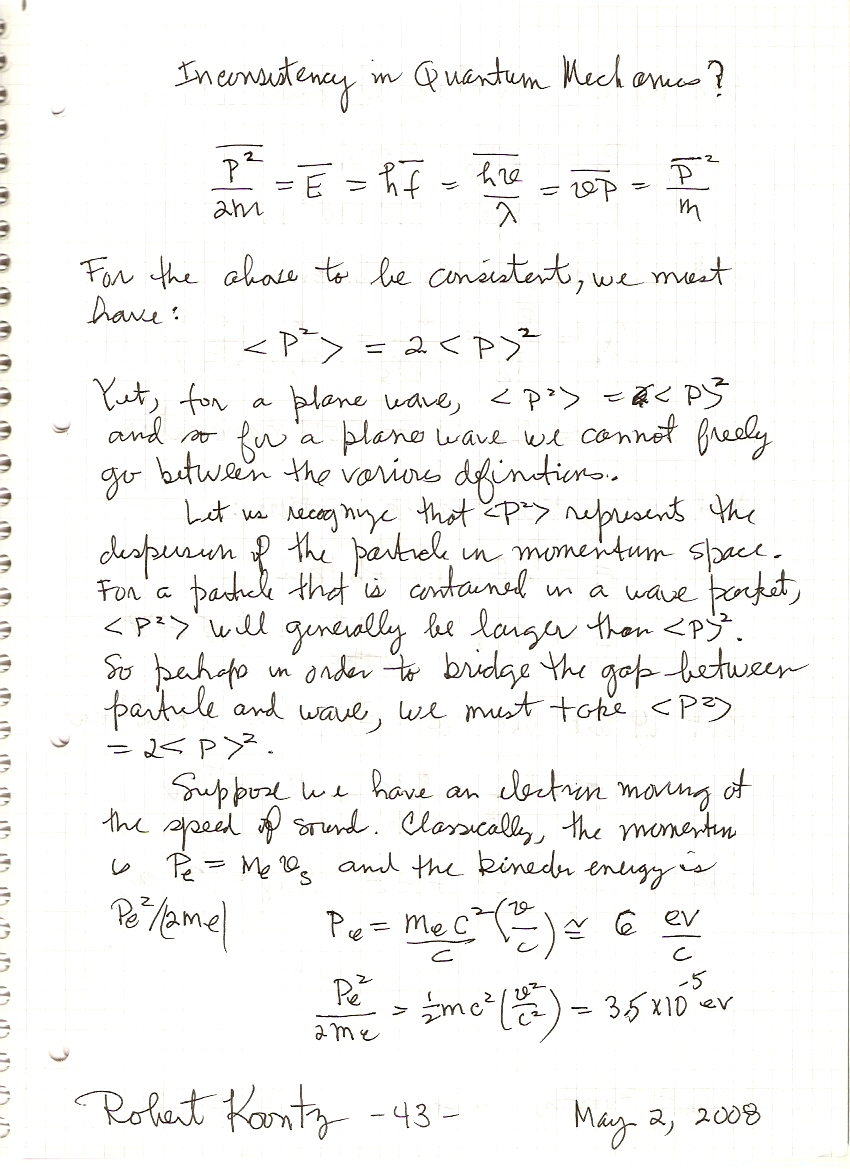 Inconsistency in Quantum Mechanics?
\overline{P^2}/2m = \overline{E} = h\overline{f} = \overline{hv}/λ = \overline{vP} = \overline{P}^2/m
For the above to be consistent, we must
have:
<P²> = 2<P>²
Yet, for a plane wave, <P²> = <P>²
and so for a plane wave we cannot freely
go between the various definitions.
Let us recognize that <P²> represents the
dispersion of the particle in momentum space.
For a particle that is contained in a wave packet,
<P²> will generally be larger than <P>².
So perhaps in order to bridge the gap between
particle and wave, we must take <P²>
= 2<P>².
Suppose we have an electron moving at
the speed of sound. Classically, the momentum
is Pe = Me vs and the kinetic energy is
Pe²/(2me) Pe = MeC²/C (v/c) ≅ 6 ev/c
Pe²/2me = ½mc²(v²/c²) = 3.5 x10⁻⁵ ev
Robert Koontz - 43 - May 2, 2008